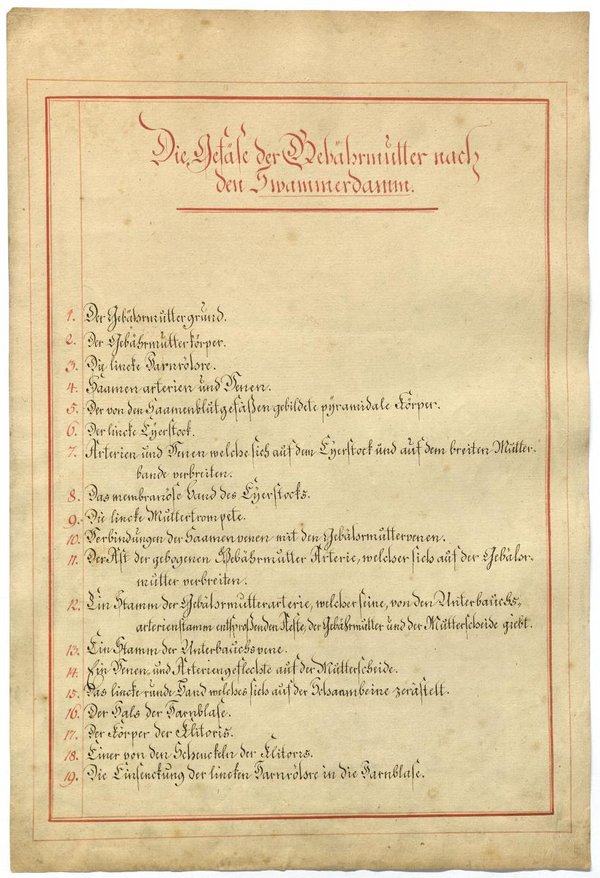 Die Gefäße der Gebährmutter nach
den Swammerdamm.
1. Der Gebährmuttergrund.
2. Der Gebährmutterkörper.
3. Die lincke Harnröhre.
4. Saamenarterien und Venen.
5. Der von den Saamenblutgefäßen gebildete pyramidale Körper.
6. Der lincke Eyerstock.
7. Arterien und Venen welche sich auf dem Eyerstock und auf dem breiten Mutter-
bande verbreiten.
8. Das membranöse Band des Eyerstocks.
9. Die lincke Muttertrompete.
10. Verbindungen der Saamenvenen mit den Gebährmuttervenen.
11. Der Ast der gebogenen Gebährmutter Arterie, welcher sich auf der Gebähr-
mutter verbreiten.
12. Ein Stamm der Gebährmutterarterie, welcher seine, von den Unterbauchs-
arterienstamm entsproßenden Aeste, der Gebährmutter und der Mutterscheide giebt.
13. Ein Stamm der Unterbauchsvene.
14. Ein Venen, und Arteriengeflechte auf der Mutterscheide.
15. Das lincke runde Band welches sich auf der Schaambeine zerästelt.
16. Der Hals der Harnblase.
17. Der Körper der Klitoris.
18. Einer von den Schenckeln der Klitoris.
19. Die Einsenckung der lincken Harnröhre in die Harnblase.